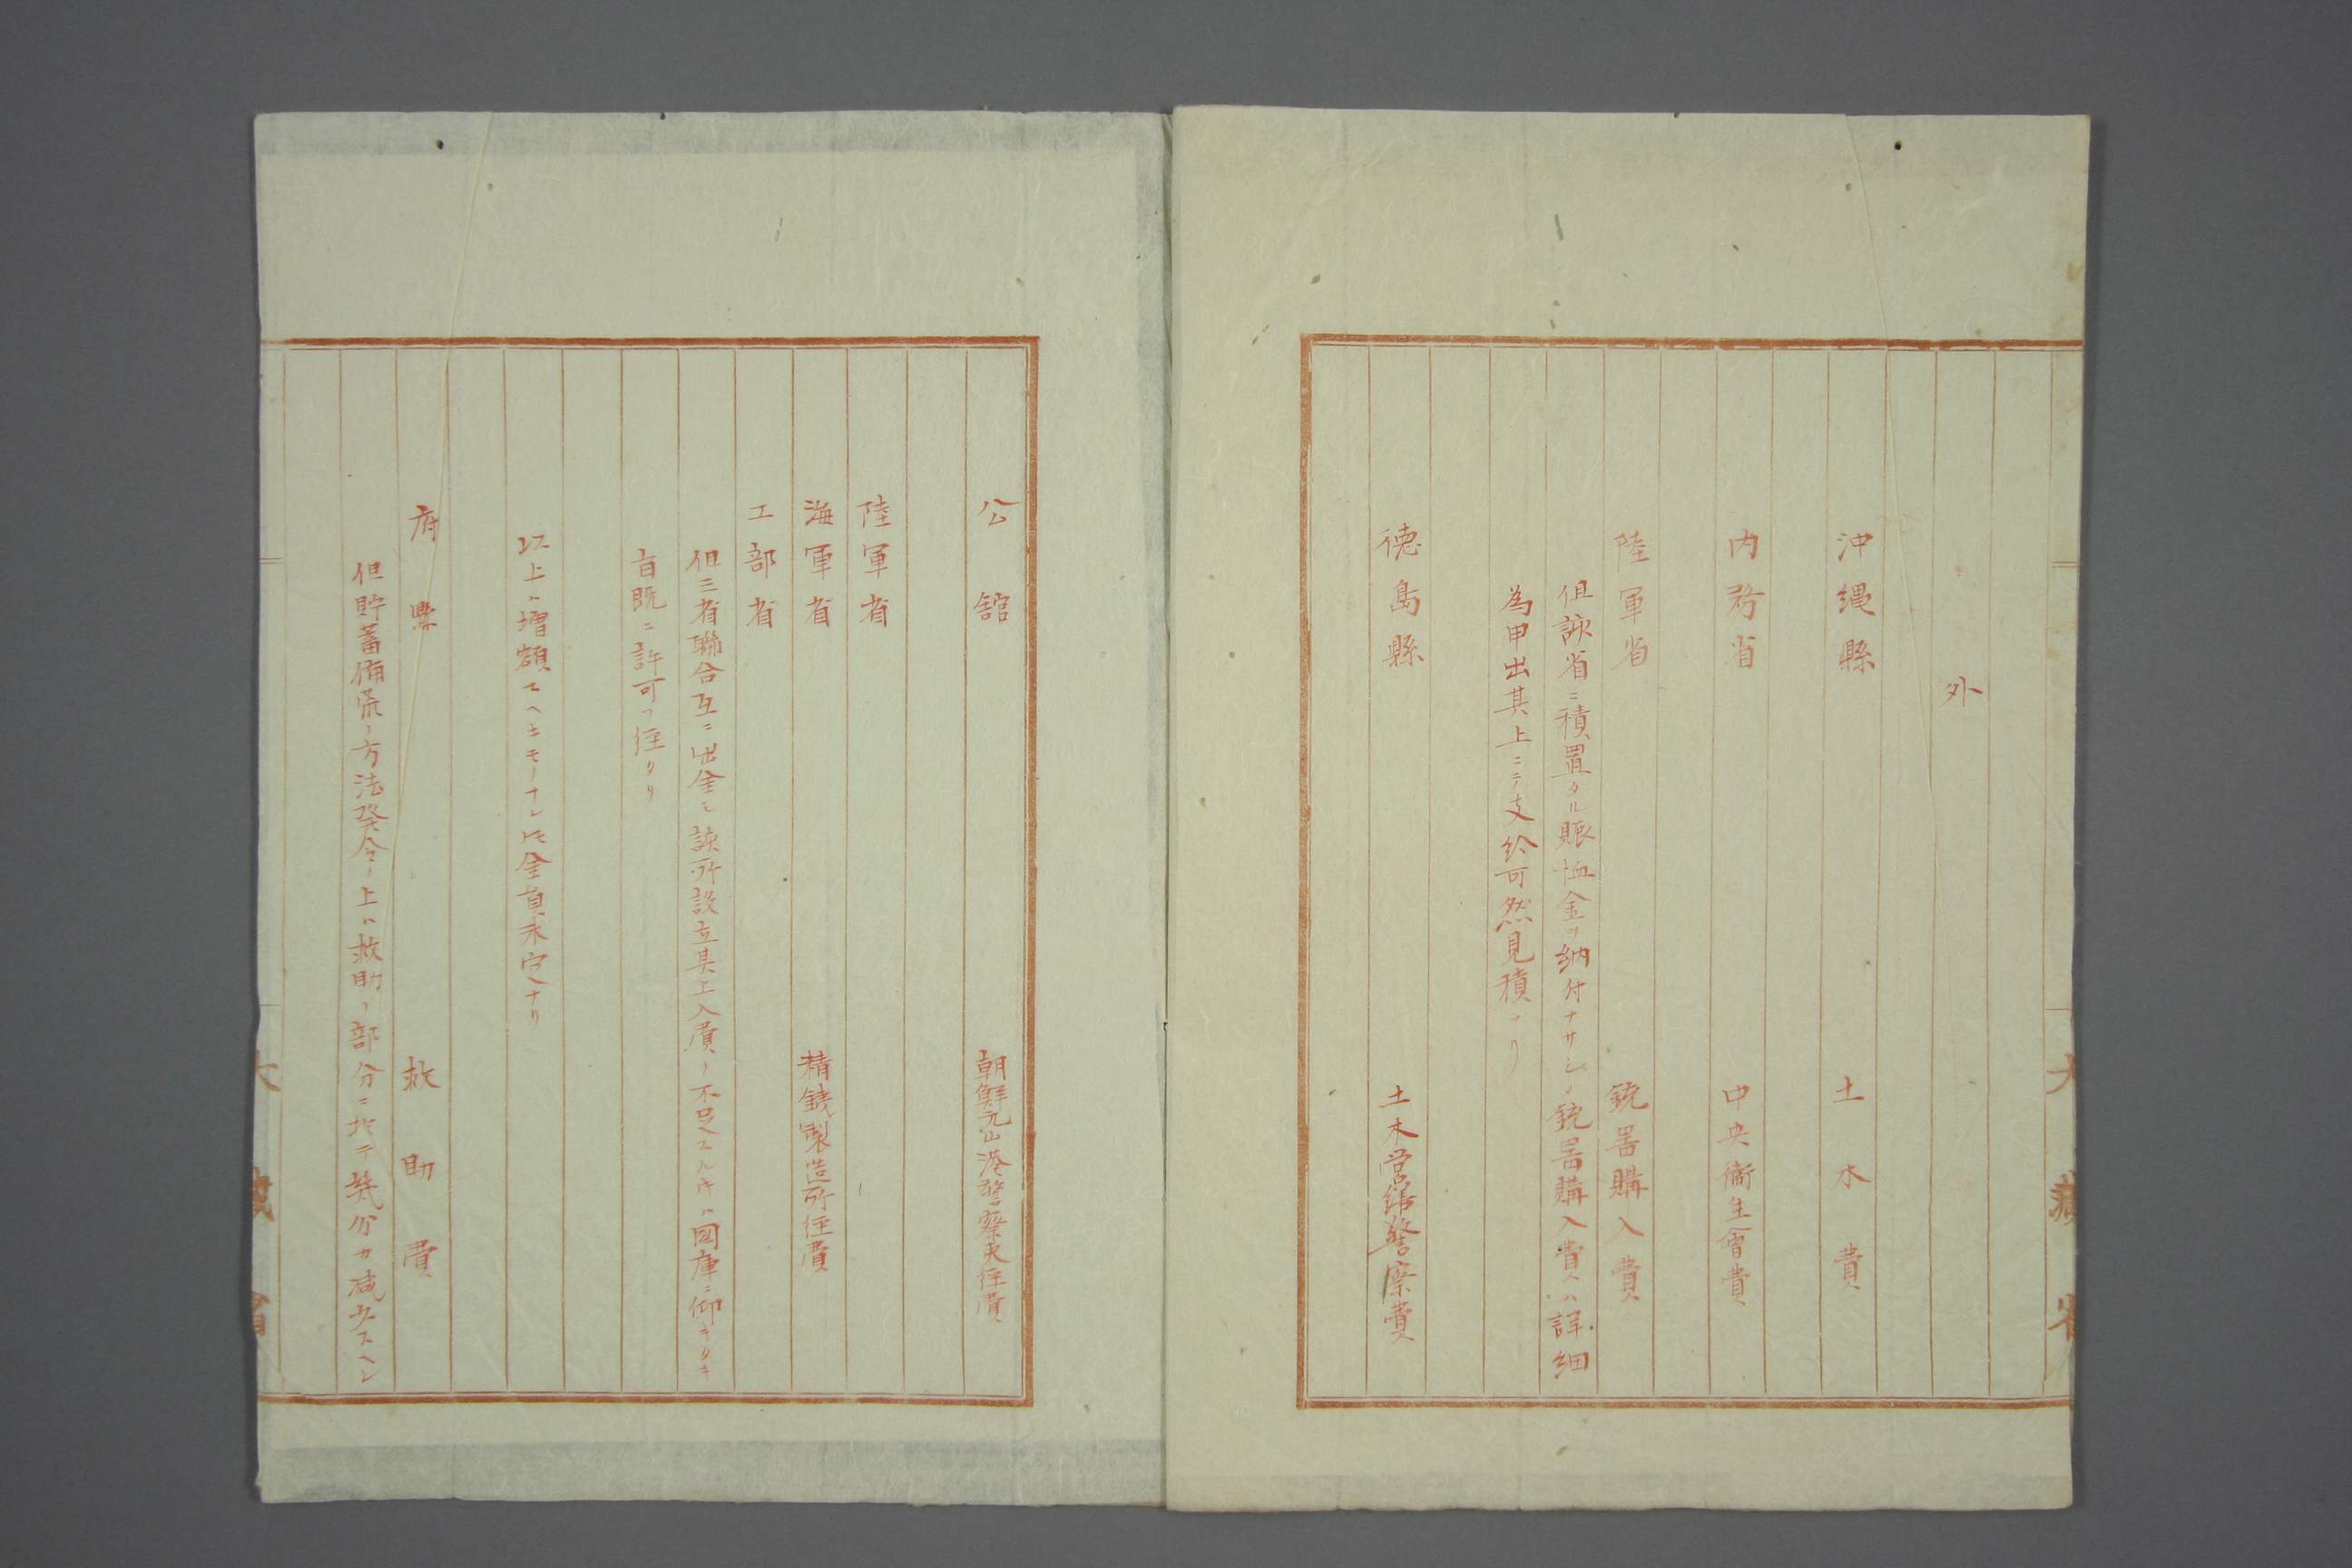 外
沖縄縣 土木費
内務省 中央衞生會費
陸軍省 銃器購入費
但該省ニ積置タル賑恤金ヲ納付ナサシメ銃器購入費ハ詳細
為申出其上ニテ支給可然見積ナリ
徳島縣 土木営繕警察費
大藏省
公舘 朝鮮元山港警察夫住費
陸軍省
海軍省 精銕製造所住費
工部省
但三省聯合互ニ出金シ該所設立具工入費ノ不足スル片ハ国庫ニ仰キタキ
旨既ニ許可ヲ經タリ
以上ハ増額スヘキモノナレ𪜈金員未定ナリ
府縣 救助費
但貯蓄備荒ノ方法発令ノ上ハ救助ノ部分ニ於テ幾分カ減少スヘシ
大藏省